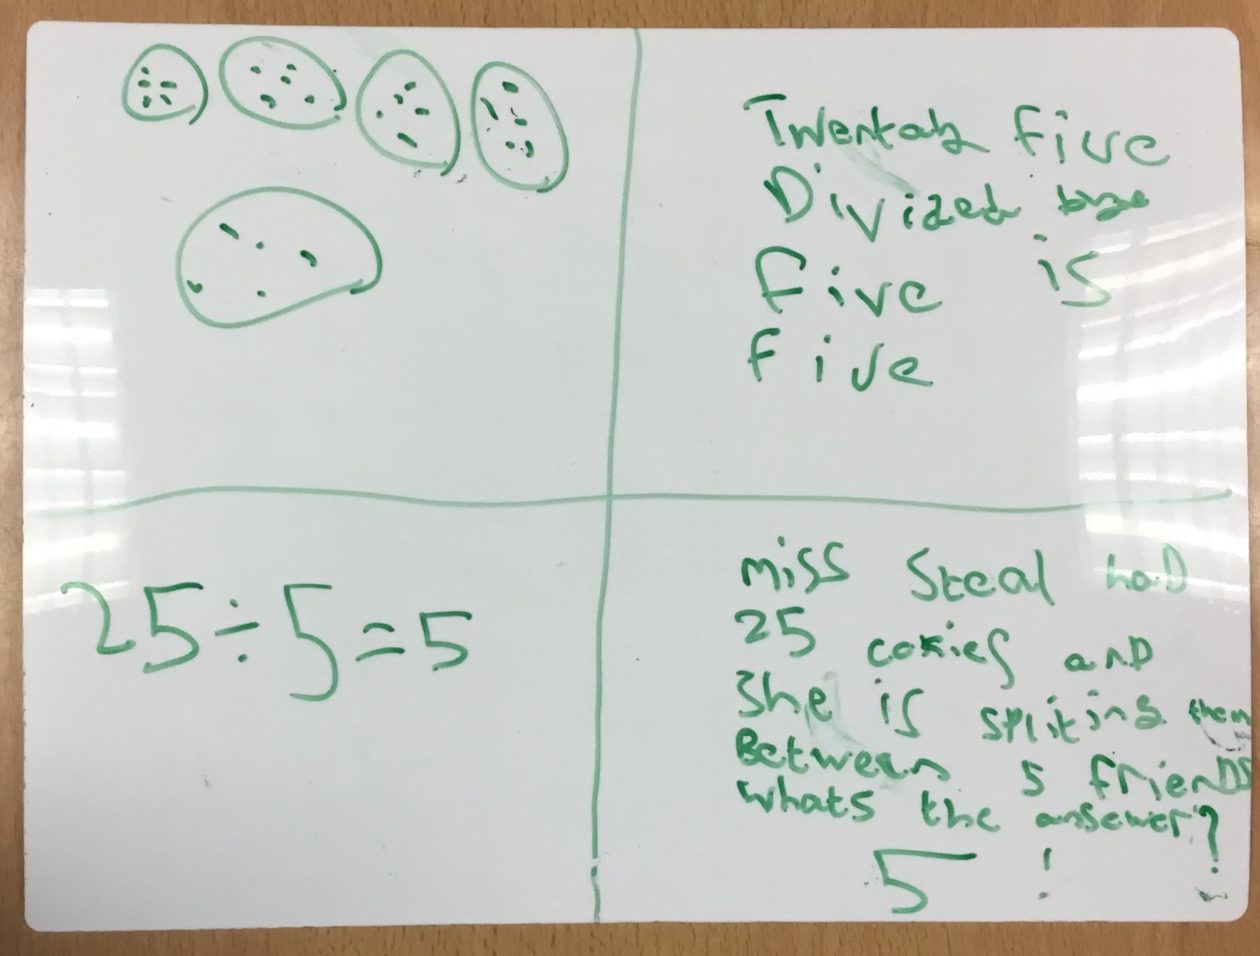 Twentay five
Divized bye
Five is
Five
25÷5=5
miss Steal haD
25 cokies anD
She is spliting them
Between 5 frienDs
whats the answer?
5!